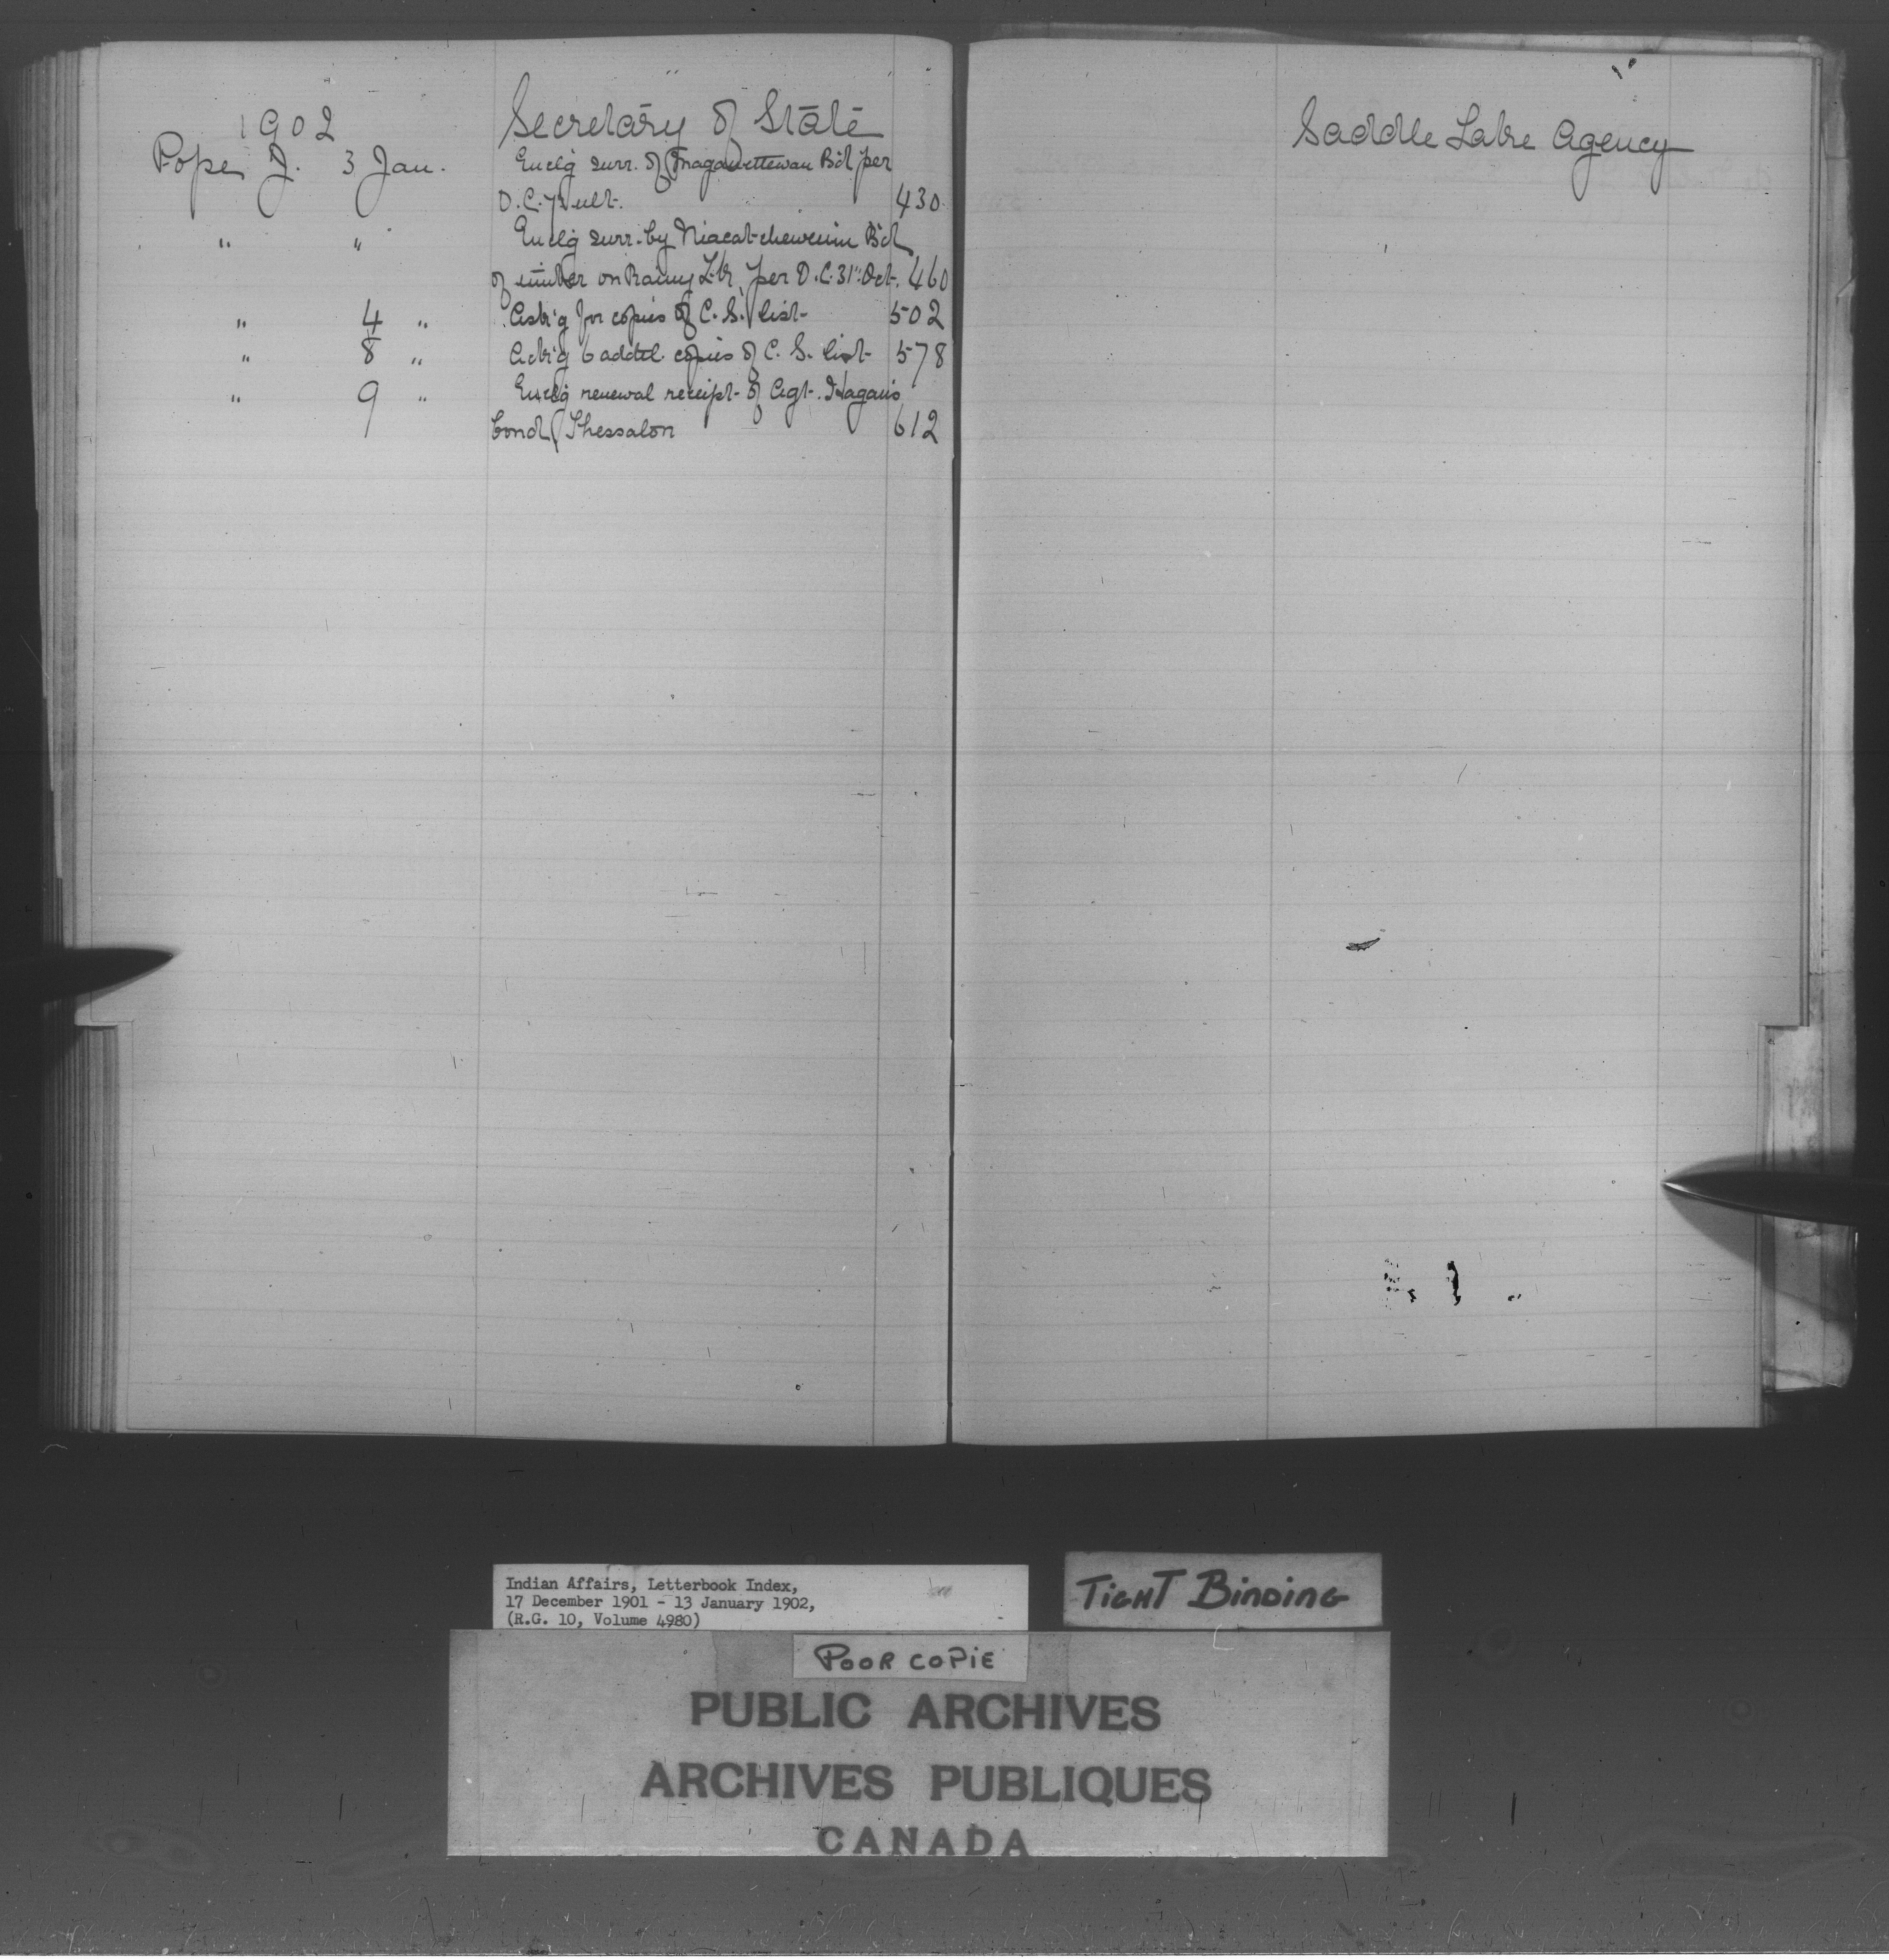 1902 Secretary of State
Pope J. 3 Jan. Enclg surr. of Maganettewan Bd per
D.C. ult. 430
" " Enclg surr. by Niacatchewenin Bd
of timber on Rainy Lk, per D.C. 31" Oct. 460
" 4 " Ask'g for copies of C. S. list 502
" 8 " Ack'g 6 addtl. copies of C. S. list 578
" 9 " Enclg renewal receipt of Agt. Hagan's
bond, Thessalon 612
Saddle Lake Agency
Indian Affairs, Letterbook Index,
17 December 1901 - 13 January 1902,
(R.G. 10, Volume 4980)
TIGHT BINDING
POOR COPIE
PUBLIC ARCHIVES
ARCHIVES PUBLIQUES
CANADA